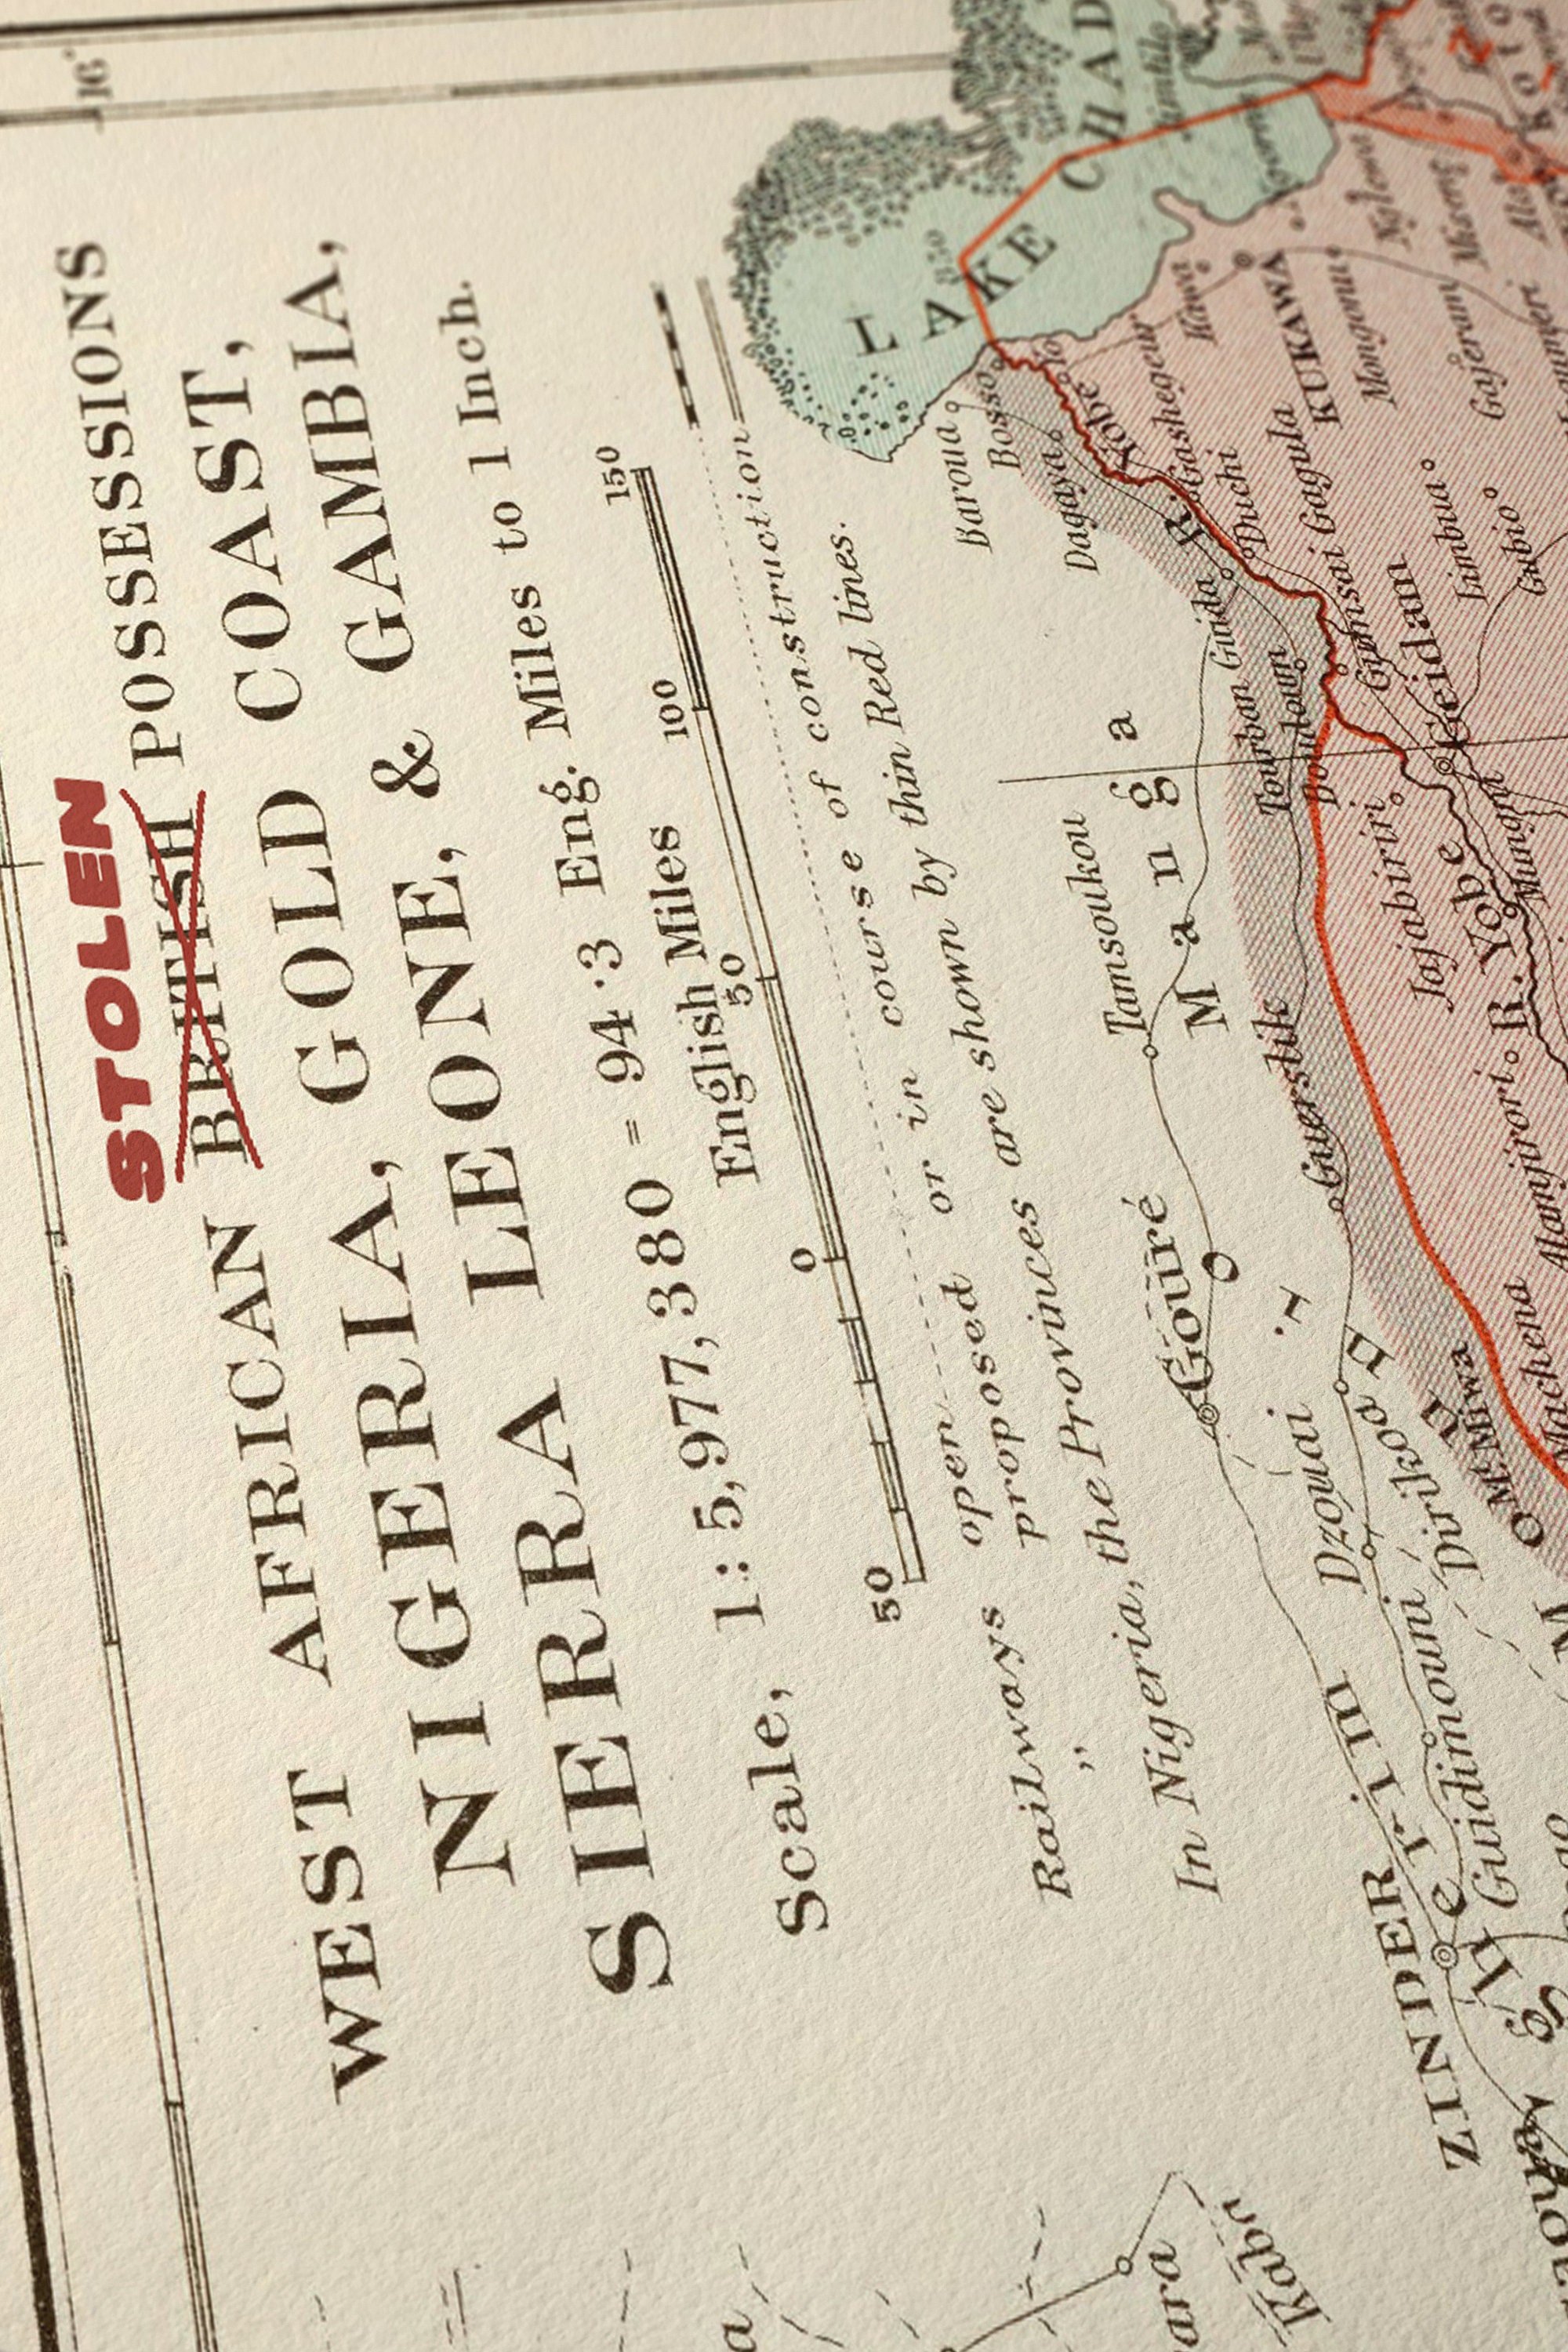 16°
STOLEN
WEST AFRICAN BRITISH POSSESSIONS
NIGERIA, GOLD COAST,
SIERRA LEONE, & GAMBIA,
Scale, 1:5,977,380 = 94·3 Eng. Miles to 1 Inch.
English Miles
50 0 50 100 150
Railways open or in course of construction
" proposed
In Nigeria, the Provinces are shown by thin Red lines.
LAKE CHAD
850
Baroua
Bosso
Dagaya
Yobe
R.
Gashegeur
Kawa
KUKAWA
Mongonu
Duchi
Gagula
Gumsai
Geidam
Limbua
Gubio
Gajeram
Guida
Tourban
Doutoum
Manga
Tamsoukou
Gouré
Guerstik
Jajabiriri
R. Yobe
Alamjirori
Machena
Miwa
Dzouai
Dirikoo
Guidimouni
ZINDER
Kabn
ara